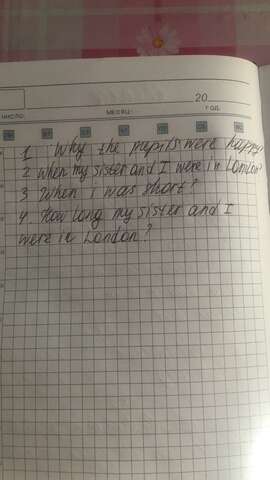 20
ЧИСЛО:
МЕСЯЦ:
ГОД
1 Why the pupils were happy
2 When my sister and I were in London?
3 When i was short?
4 How long my sister and I
were in London?